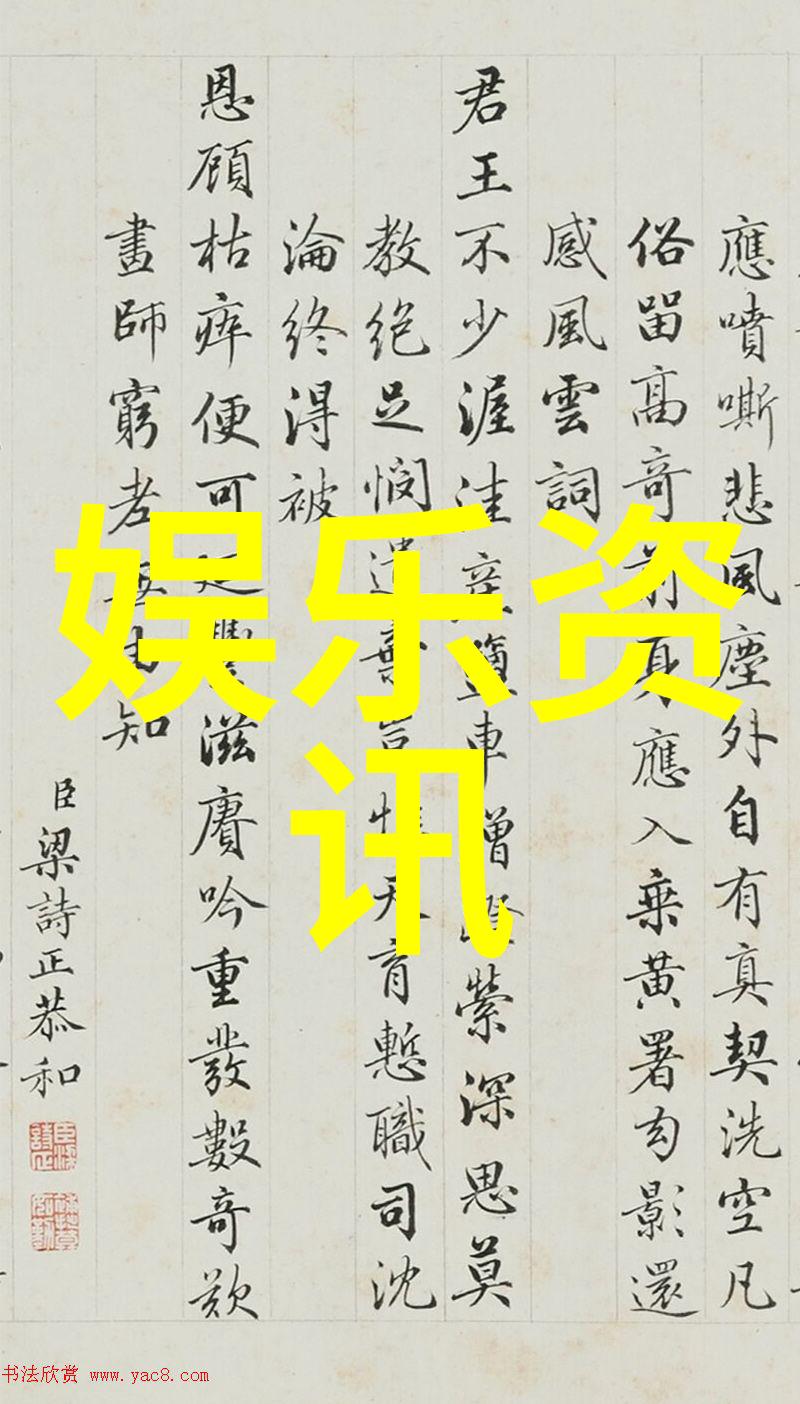 應噴嘶悲風塵外自有真契洗空凡
俗留高奇前身應入乗黃署勾影還
感風雲詞
君王不少渥洼產車曾縈深思莫
教絶足憫遺天育慙職司沈
淪終淂被
恩顧枯痺便可滋賡吟重發數奇歎
畫師窮老知
臣梁詩正恭和
娱乐资
讯
书法欣赏 www.yac8.com